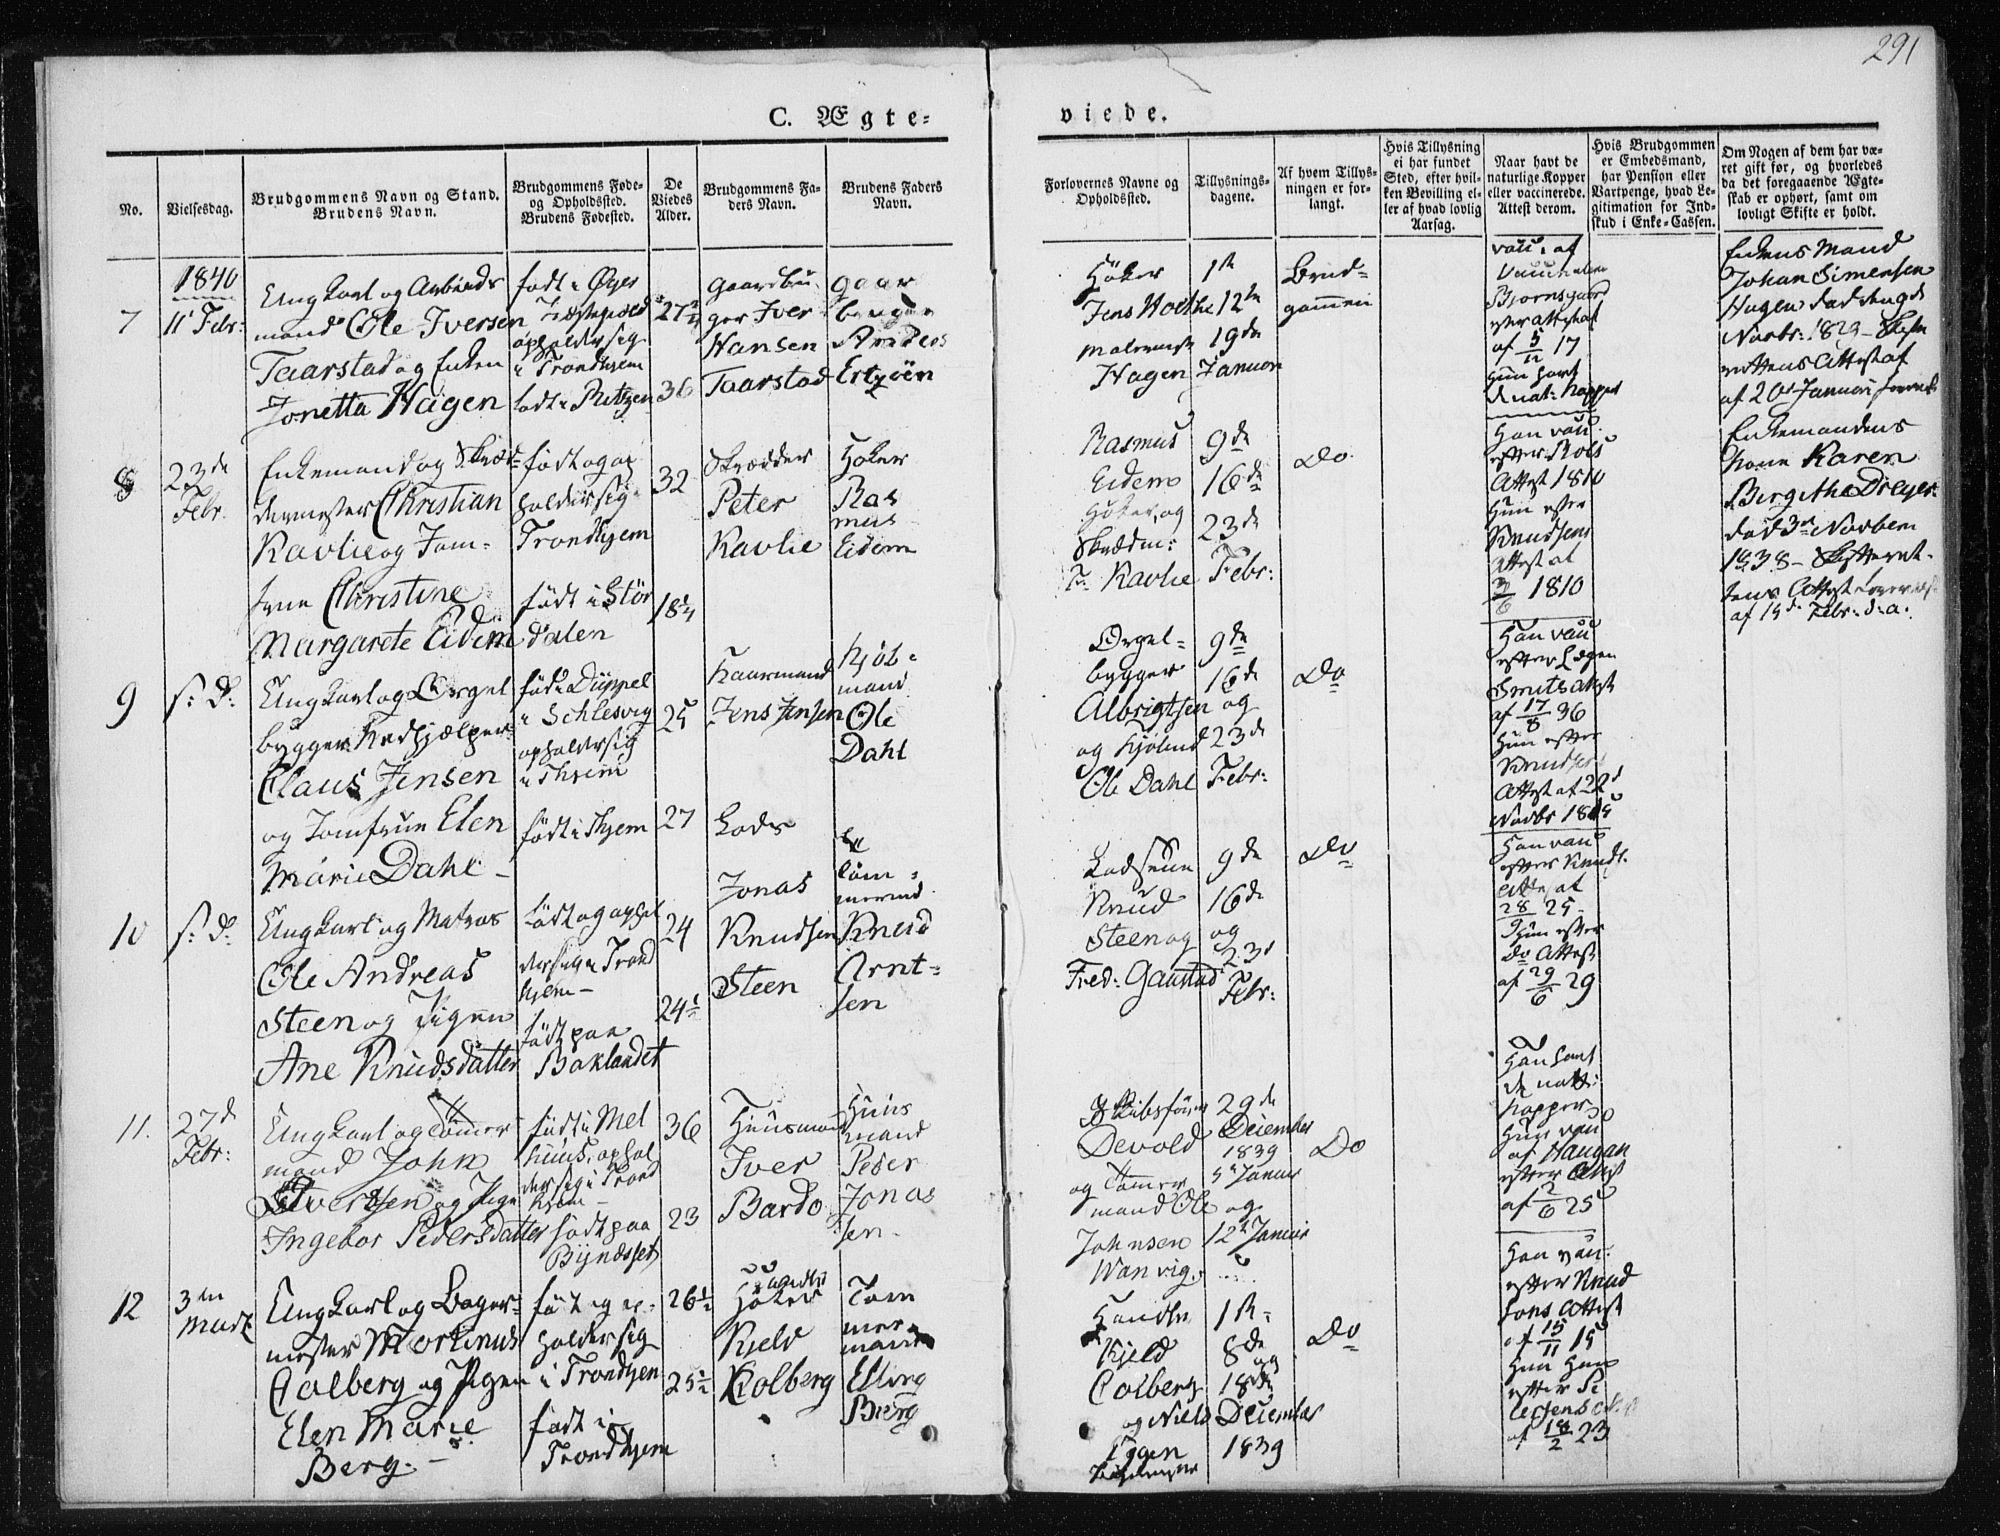 291
C. Ægte=
viede.
No.
Vielsesdag.
Brudgommens Navn og Stand.
Brudens Navn.
Brudgommens Føde=
og Opholdssted.
Brudens Fødested.
De
Viedes
Alder.
Brudgommens Fa=
ders Navn.
Brudens Faders
Navn.
Forlovernes Navne og
Opholdssted.
Tillysnings=
dagene.
Af hvem Tillys=
ningen er for=
langt.
Hvis Tillysning
ei har fundet
Sted, efter hvil=
ken Bevilling el=
ler af hvad lovlig
Aarsag.
Naar havt de
naturlige Kopper
eller vaccinerede.
Attest derom.
Hvis Brudgommen
er Embedsmand,
har Pension eller
Vartpenge, hvad Le=
gitimation for Ind=
skud i Enke=Cassen.
Om Nogen af dem har væ=
ret gift før, og hvorledes
da det foregaaende Ægte=
skab er ophørt, samt om
lovligt Skifte er holdt.
7
1840
11 Febr:
Ungkarl og Arbeids
mand Ole Iversen
Taarstad og Enken
Jonetta Hagen
født i Øyes
Præstegield
opholder sig
i Trondhjem
født i
27½
36
Gaardbru
ger Iver
Hansen
Taarstad
gaar
bruger
Ertzöen
Höker
Jens Holthe
Hagen
1ste
12te
19de
Januar
Brud=
gommen
vacc. af
af 5/11 17
Hun havt
d. nat: Kopper
Enkens Mand
Johan Simensen
Hagen død
Novbr: 1829 – Skifte
rettens Attest af
af 20de Januar
8
23de
Febr.
Enkemand og Skræd=
dermester Christian
Kavlie og Jom=
frue Christine
Margarete Eidem
født og op
holder sig i
Trondhjem
født i Stör
dalen
32
18¼
Skrædder
Peter
Kavlie
Höker
Ras
mus
Eidem
Rasmus
Eidem
Höker, og
Skrædder:
P. Kavlie
9de
16de
23de
Febr:
Do
Han vacc.
efter
Attest 1810
Hun efter
Knudsens
Attest af
3/6 1810
Enkemandens
Kone Karen
Birgithe Dreyer
død 3de Novbem
1838 – Skifteret=
tens Attest
af 15de Febr: d. a.
9
s: D:
Ungkarl og Orgel
bygger Medhjælper
Claus Jensen
og Jomfrue Elen
Marie Dahl –
født i Düppel
i Schlesvig
opholder sig
i Thjem
født i Thjem
25
27
Jens Jensen
Kjöb=
mand
Ole
Dahl
Orgel=
bygger
Albrigtsen
og Kjöbmd
Ole Dahl
9de
16de
og
23de
Febr:
Do
Han vacc
efter Lægen
Smits Attest
af 17/8 36
Hun efter
Knudsens
Attest af 22d
10
s: D:
Ungkarl og Matros
Ole Andreas
Steen og Pigen
Ane Knudsdatter
født og ophol
der sig i Trond
hjem –
født paa
Baklandet
24
24½
Lods
Jonas
Knudsen
Steen
töm=
mermd
Knud
Arnt=
sen
Knud
Steen og
Fred: Gaustad
9de
16de
og
23d
Febr:
Do
Han vacc
efter Knuds.
Att. af
28/8 25 –
Hun efter
Do Attest
af 29/6 29
11.
27d
Febr:
Ungkarl og Tömmer
mand John
Ivertsen og Pigen
Ingebor Pedersdatter
født i Mel
huus, ophol
der sig i Trond
hjem –
født paa
Byndsset
36
23
Huusmand
Iver
Bardo
Huus
mand
Peder
Jonas
sen
Skibsförer
Devold
og Tömmer
mand Ole
Johnsen
Wanvig
29de
Decembr
1839
5te Januar
og
12te Januar
Do
Han havt
de natt:
Kopper
Hun vacc
af Haugan
efter Attest
af 2/6 25
12
3die
Martz
Ungkarl og Bager=
mester Mortinus
Colberg og Pigen
Elen Marie
Berg. –
født og op=
holder sig
i Trondhjem
født i
Trondhjem
26½
25½
Handler
Höker
Kjeld
Kolberg
Tøm
mer
mand
Elling
Berg
Handler
Kjeld
Colberg
og Niels
Eggen
1ste
8de
og
18de
Decembr
1839
Do
Han vacc.
efter Knud
sens Attest
af 15/11 15
Hun
efter Pe
tersens Attest
af 18/2 23